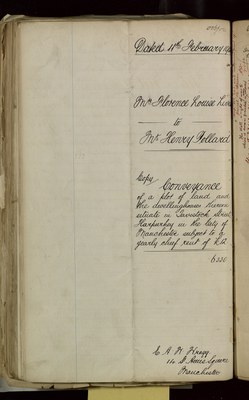 Dated 11th February
Mrs Florence Louise
to
Mr Henry Pollard
Copy
Conveyance
of a plot of land and
the dwellinghouse thereon
situate in Tavistock Street
Harpurhey in the City of
Manchester subject to a
yearly chief rent of £2
C. A. W.
St Anns Square
Manchester